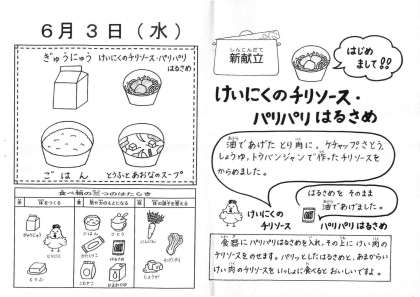 ６月３日（水）
ぎゅうにゅう
けいにくのチリソース・パリパリ
はるさめ
ごはん
とうふとあおなのスープ
食べ物の三つのはたらき
ぎゅうにゅう
とりにく
とうふ
ごはん
さとう
かたくりこ
はるさめ
こむぎこ
あぶら
にんじん
しんこんだて
新献立
はじめ
まして!!
けいにくのチリソース・
パリパリはるさめ
油であげたとり肉に、ケチャップさとう、
しょうゆ、トウバンジャンで作ったチリソースを
からめました。
はるさめを そのまま
油であげました。
けいにくの
チリソース
パリパリはるさめ
食器にパリパリはるさめを入れ、その上にけい肉の
チリソースをのせます。パリッとしたはるさめと、あまからい
けい肉のチリソースをいっしょに食べるとおいしいですよ。